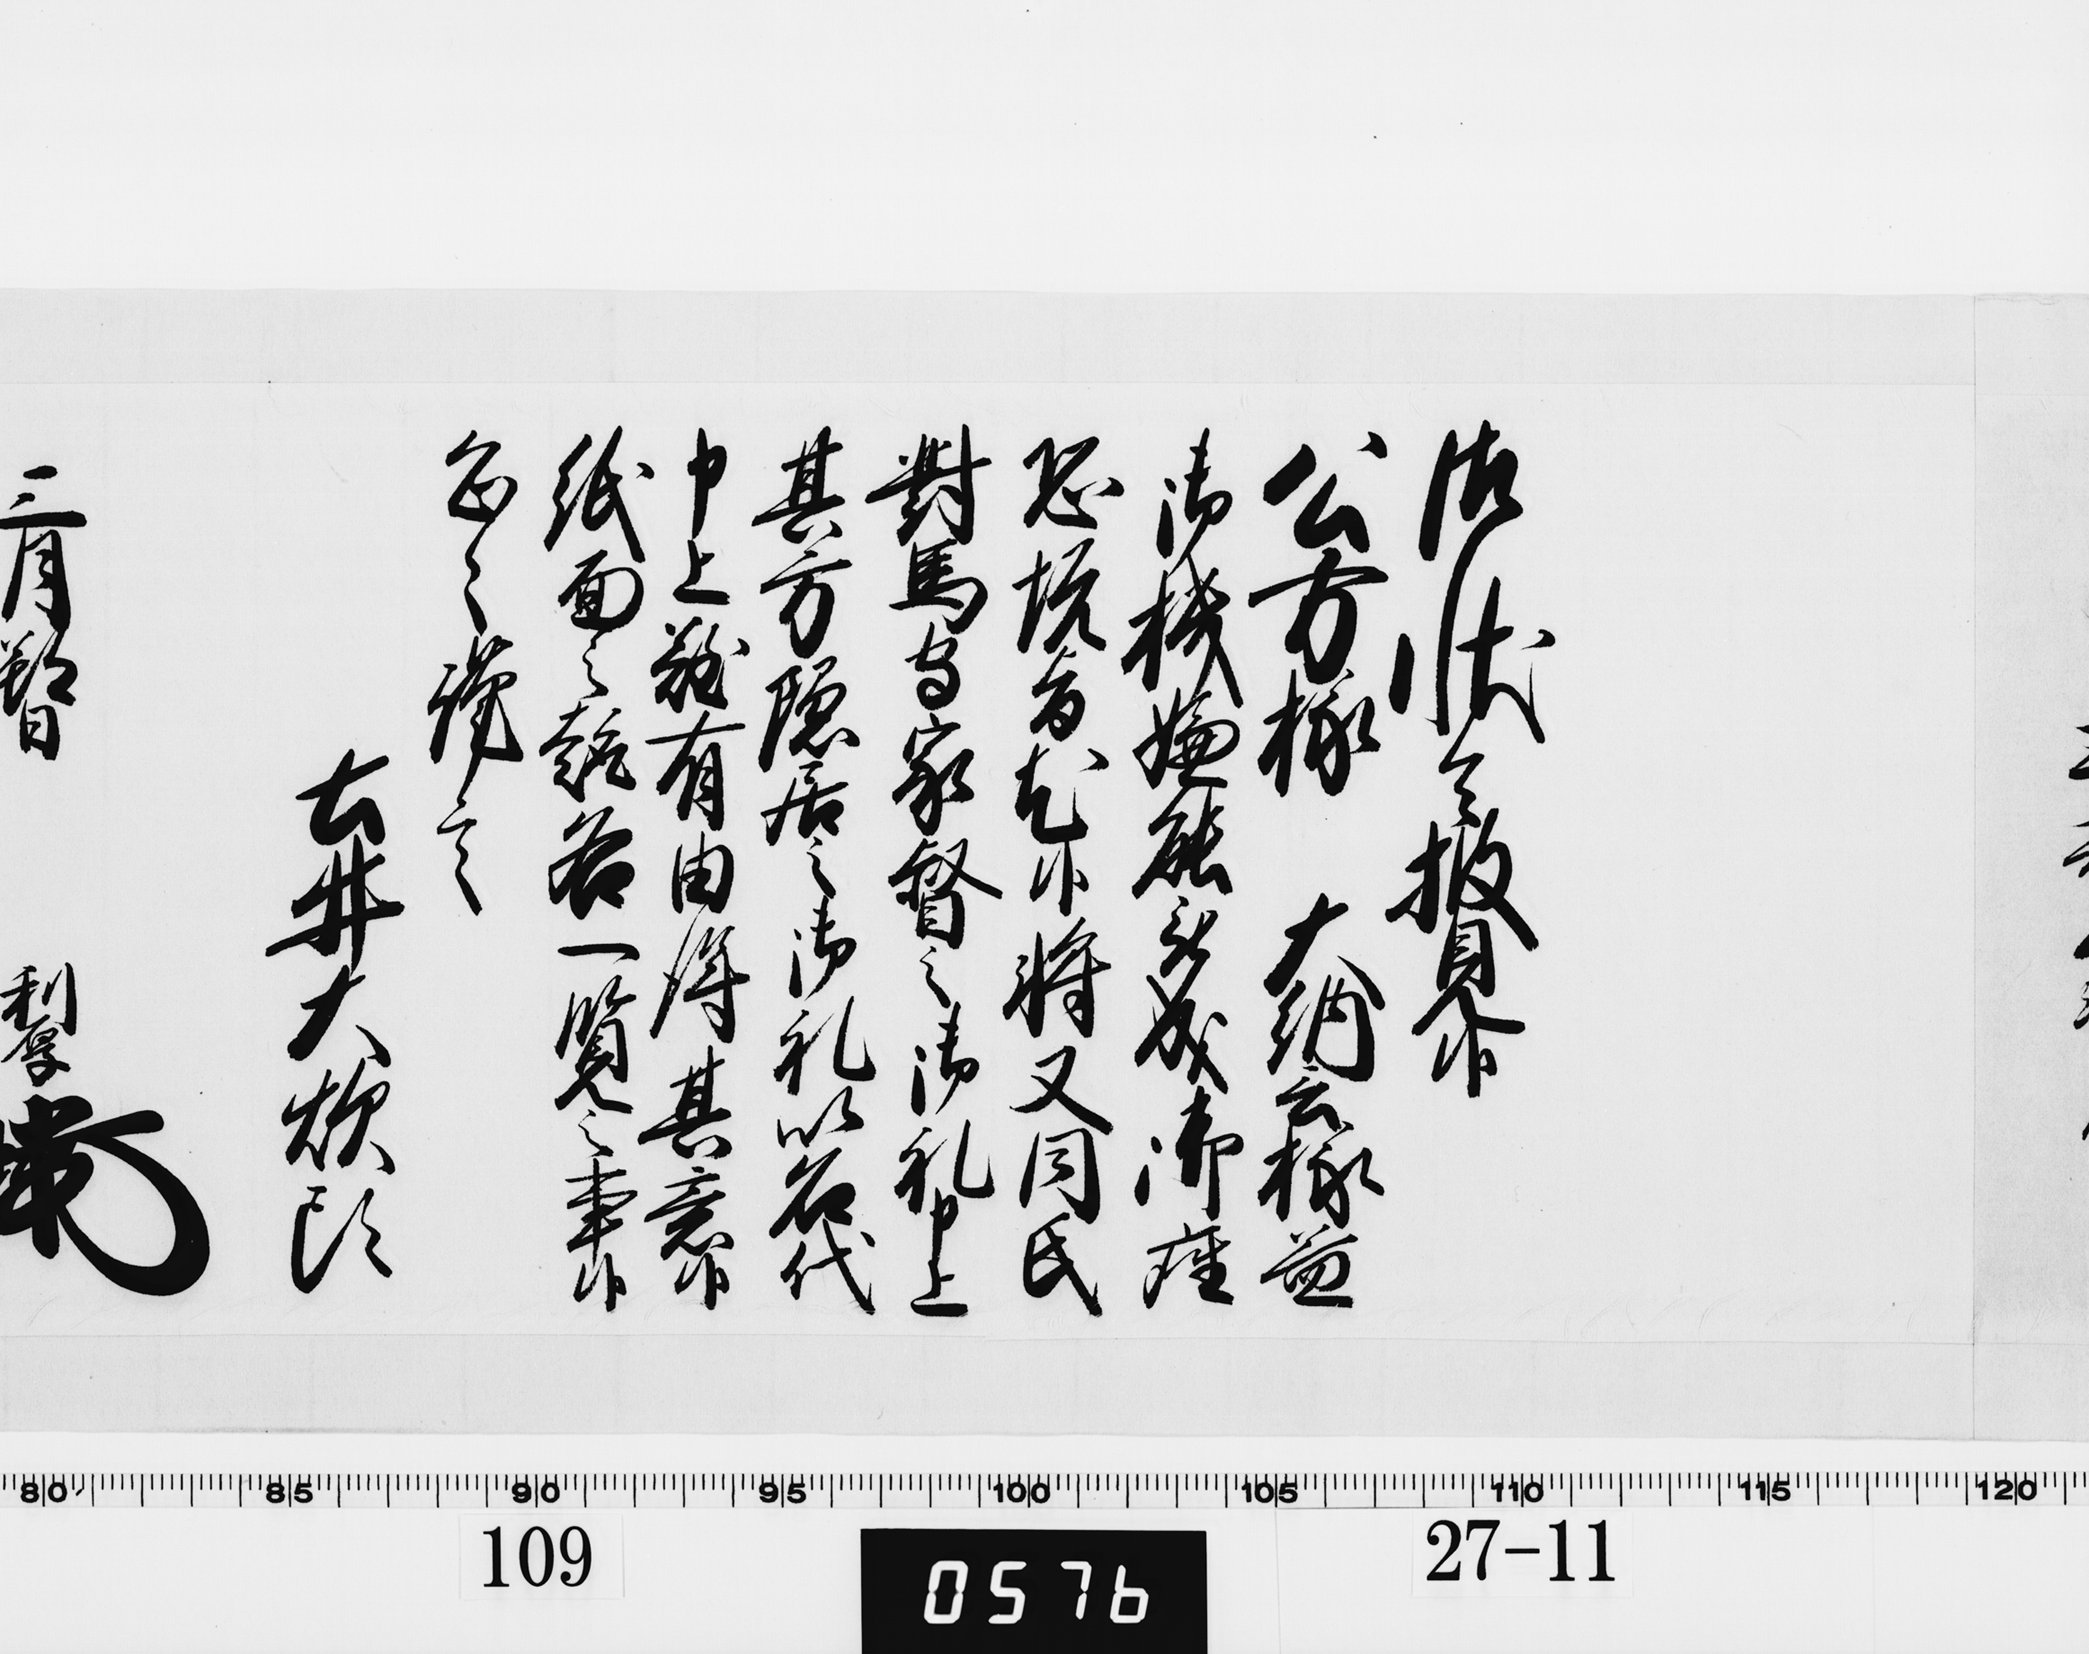 御状令披見候
公方様　大納言様益
御機嫌能被成御座
恐悦旨尤候将又同氏
對馬守家督之御礼申上
其方隠居之御礼以名代
申上難有由得其意候
紙面之趣各一覧之事候
恐々謹言
土井大炊頭
三月
利厚
80 85 90 95 100 105 110 115 120
109
0576
27-11